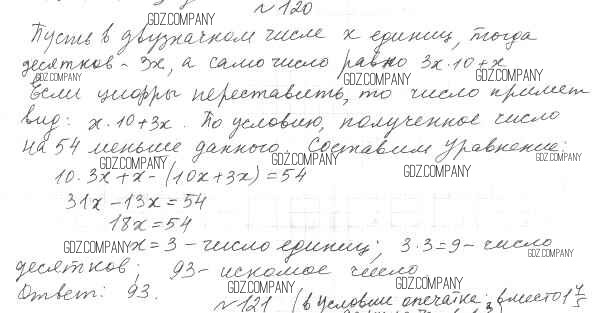 № 120
GDZ.COMPANY
Пусть в двузначном числе x единиц, тогда
десятков - 3x, а само число равно 3x·10+x
GDZ.COMPANY GDZ.COMPANY GDZ.COMPANY
Если цифры переставить, то число примет
вид: x·10+3x. По условию, полученное число
на 54 меньше данного. Составим уравнение:
GDZ.COMPANY GDZ.COMPANY GDZ.COMPANY
10·3x+x-(10x+3x)=54
GDZ.COMPANY
31x-13x=54
18x=54
GDZ.COMPANY x=3 - число единиц; 3·3=9 - число
GDZ.COMPANY
десятков; 93 - искомое число
Ответ: 93.
GDZ.COMPANY GDZ.COMPANY
№ 121 (в условии опечатка: вместо 1 4/5